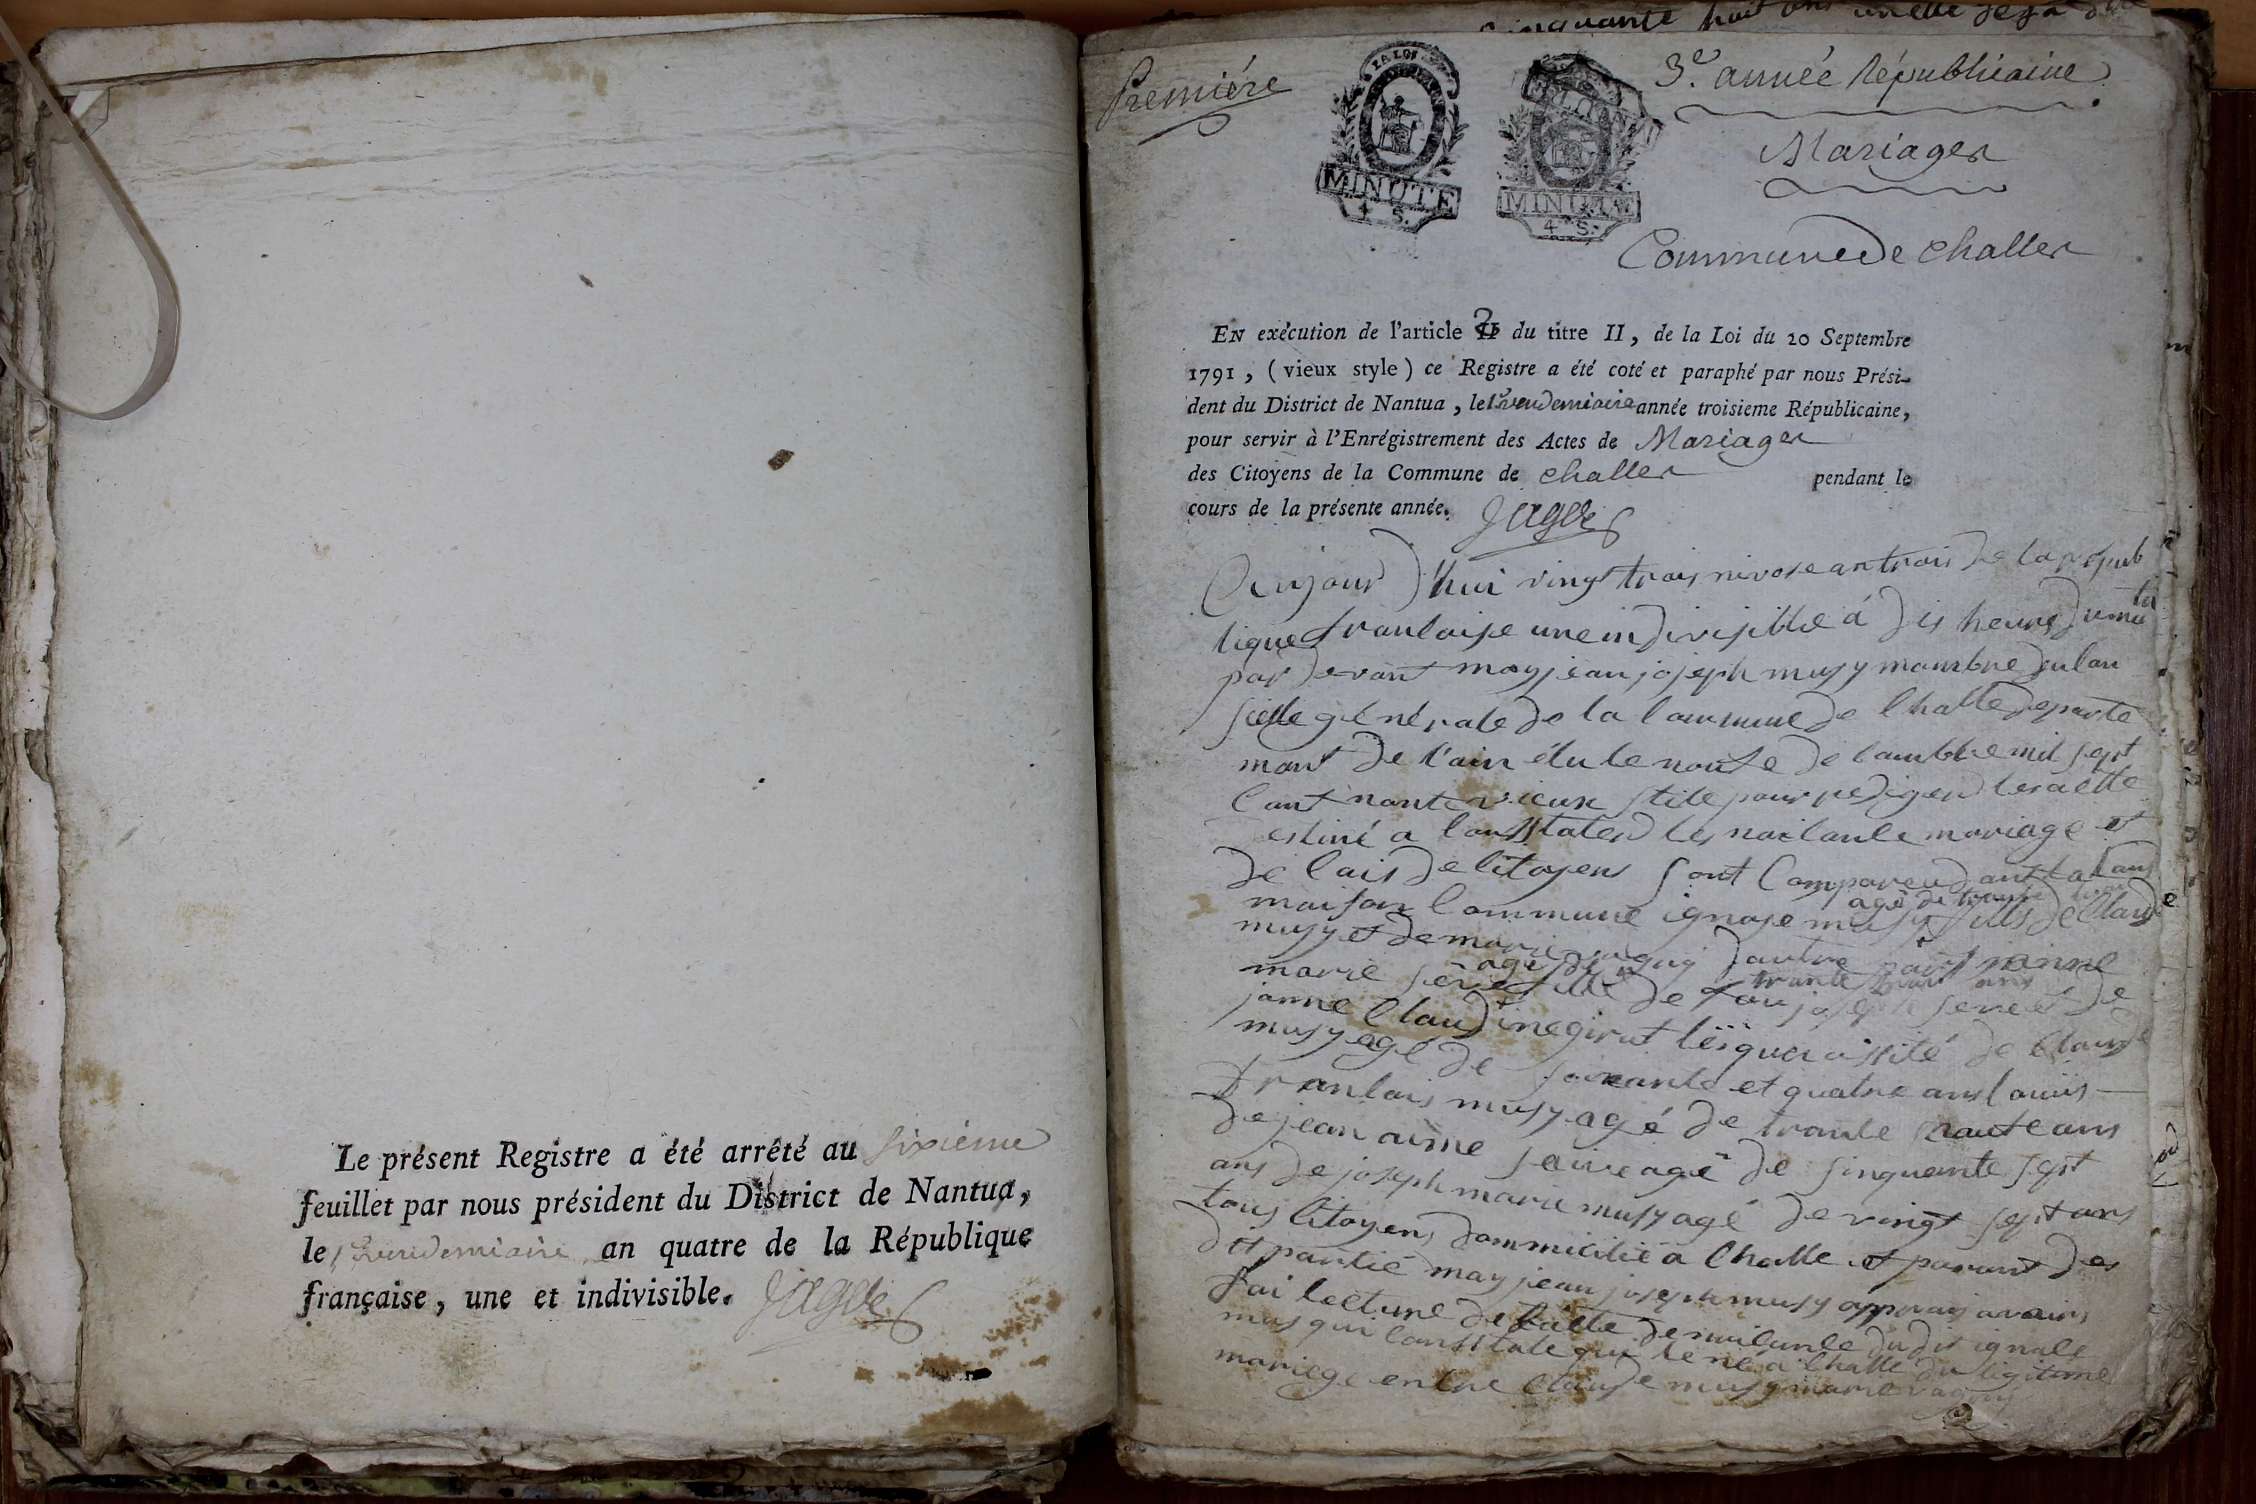 Le présent Registre a été arrêté au sixiéme
feuillet par nous président du District de Nantua,
le 1er vendemiaire an quatre de la République
française, une et indivisible. Jagot
cinquante huit ans
Premiére
3e. année Républicaine
LA LOI
MINUTE
4 S.
MINUTE
4 S.
Mariages
Commune de Challes
EN exécution de l'article 2 du titre II, de la Loi du 20 Septembre
1791, (vieux style) ce Registre a été coté et paraphé par nous Prési-
dent du District de Nantua, le 1er vendemiaire année troisieme Républicaine,
pour servir à l'Enrégistrement des Actes de Mariages
des Citoyens de la Commune de Challes pendant le
cours de la présente année.
Aujourd'hui vingt trois nivose an trois de la repub
lique francaise une indivisible á dis heures du matin
par devant moy jean joseph musy mambre du Con
seille générale de la Commune de Challe departe
mant de l'ain élu le nonse de mil sept
Cant nonte vieux stile pour rediger les actte
estiné a Consttater les naicance mariage et
de Cais de Citoyens sont Comparu dant la
maison Commune ignase musy fills de Claude
agé de trante trois ans
musy et de marie dautre part janne
marie seve fille de fau joseph seve et de
agé de trante ans
janne Claudine girat assité de Claude
musy agé de soixante et quatre ans
francois musy agé de trante ans
de jean aime agé de sinquante sept
ans de joseph marie musy agé de vingt sept ans
tous Citoyens dommicilié a Challe et parant des
dit partie moy jean joseph musy appray avoire
fai lecture de lacte de naicance du dit ignace
musy qui Consttate qui le né a Challe du ligitime
mariege entre Claude musy marie